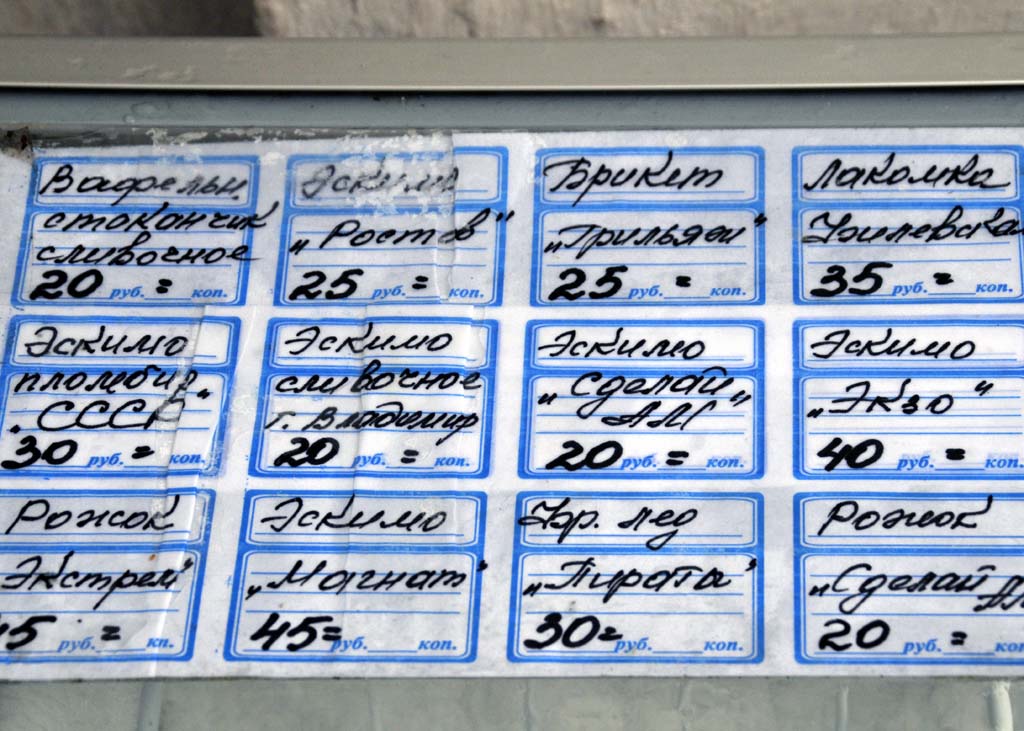 Вафельн.
стаканчик
сливочное
20 руб. = коп.
Эскимо
„Ростов"
25 руб. = коп.
Брикет
„Грильяж"
25 руб. = коп.
Лакомка
35 руб. = коп.
Эскимо
пломбир
„СССР"
30 руб. = коп.
Эскимо
сливочное
г. Владимир
20 руб. = коп.
Эскимо
„Сделай
АМ"
20 руб. = коп.
Эскимо
„Экзо"
40 руб. = коп.
Рожок
Экстрем"
5 руб. = кп.
Эскимо
„Магнат"
45= руб. коп.
Фр. лед
„Пираты"
30= руб. коп.
Рожок
„Сделай АМ
20 руб. = коп.